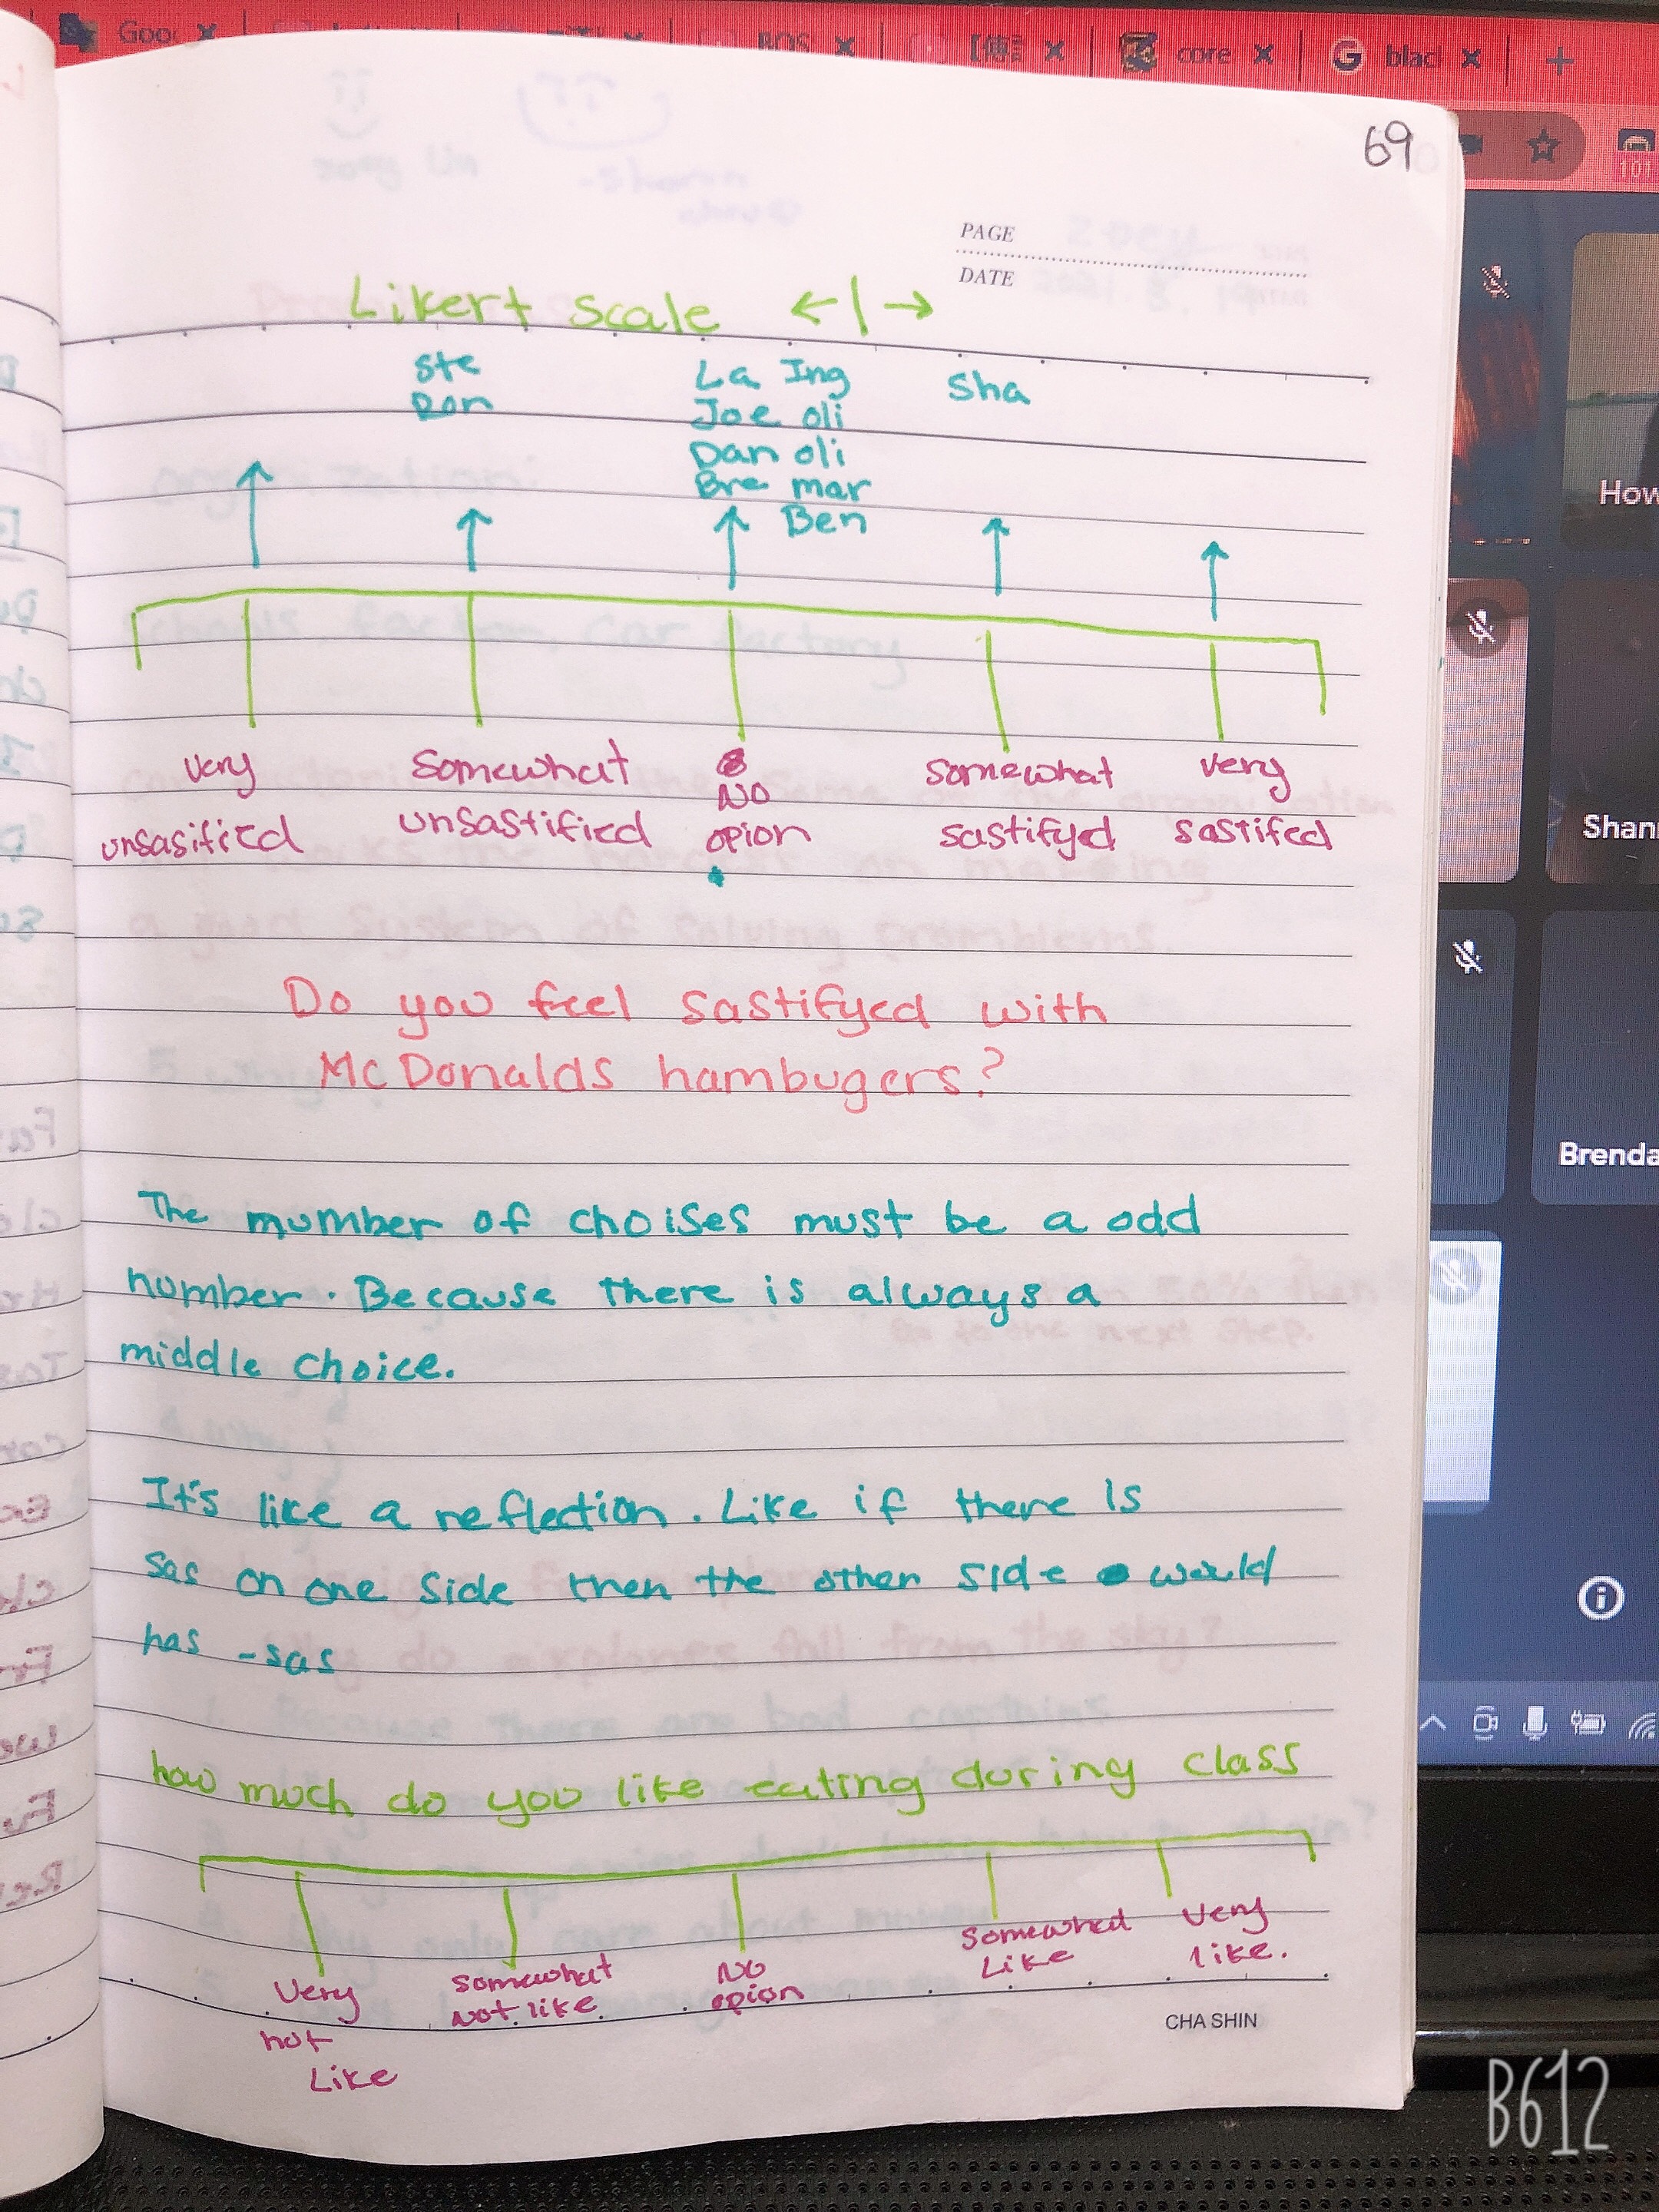 Goo
BOS
core
blac
69
101
PAGE
DATE
Likert scale ←|→
Ste
Ron
La Ing
Joe oli
Dan oli
Bre mar
Ben
Sha
very
unsasified
Somewhat
unsastified
No
opion
somewhat
sastifyd
very
sastifed
Do you feel sastifyed with
McDonalds hambugers?
The mumber of choises must be a odd
number. Because there is always a
middle choice.
It's like a reflection. Like if there is
sas on one side then the other side would
has -sas
how much do you like eating during class
Very
not
Like
somewhat
Not like.
No
opion
Somewhat
Like
Very
like.
CHA SHIN
How
Shann
Brenda
B612